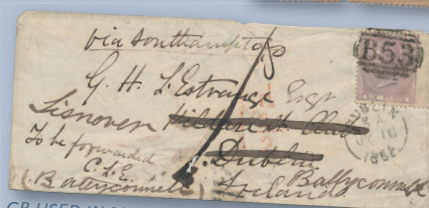 via Southampton
G. H. L'Estrange Esqr
Lisnover Kildare St Club
To be forwarded
Dublin
C. L'E.
(Ballyconnell)
Ireland Ballyconnell
B53
GB USED IN